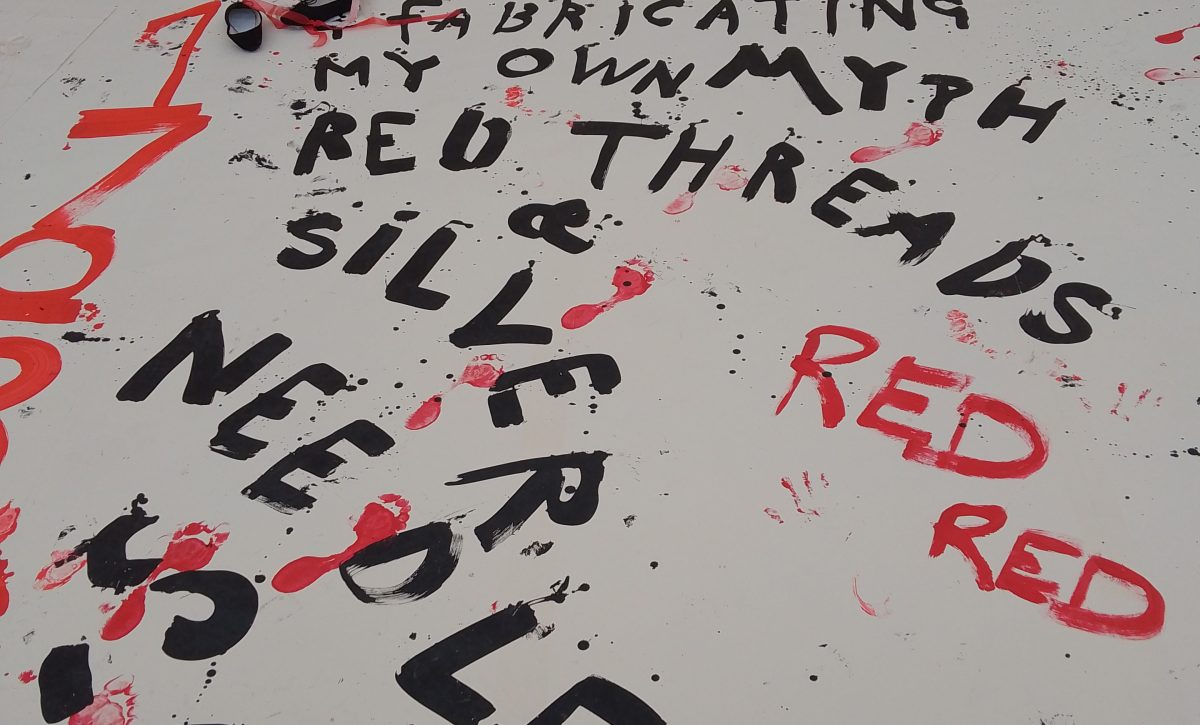 FABRICATING
MY OWN MYPH
RED THREADS
&
SiLLER
NEEDLE
S
RED
RED